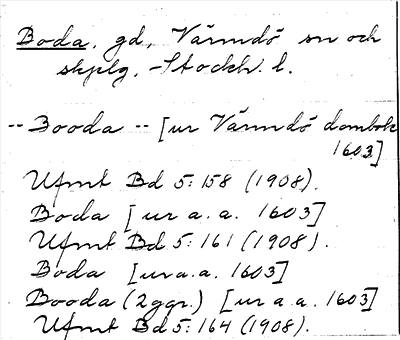 Boda, gd, Värmdö sn och
skplg, Stockh. l.
-- Booda -- [ur Värmdö dombok
1603]
Ufmt Bd 5:158 (1908).
Boda [ur a.a. 1603]
Ufmt Bd 5:161 (1908).
Boda [ur a.a. 1603]
Booda (2ggr.) [ur a.a. 1603]
Ufmt Bd 5:164 (1908).